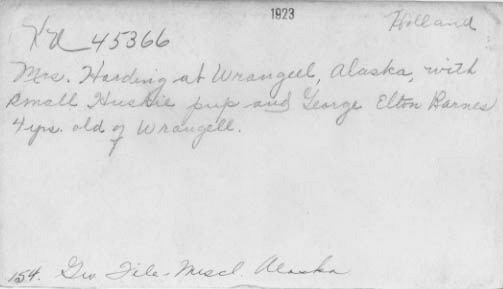 1923
Holland
XN 45366
Mrs. Harding at Wrangell, Alaska, with
small Huskie pup and George Elton Barnes
4 yrs. old of Wrangell.
154. Gro File - Miscl. Alaska